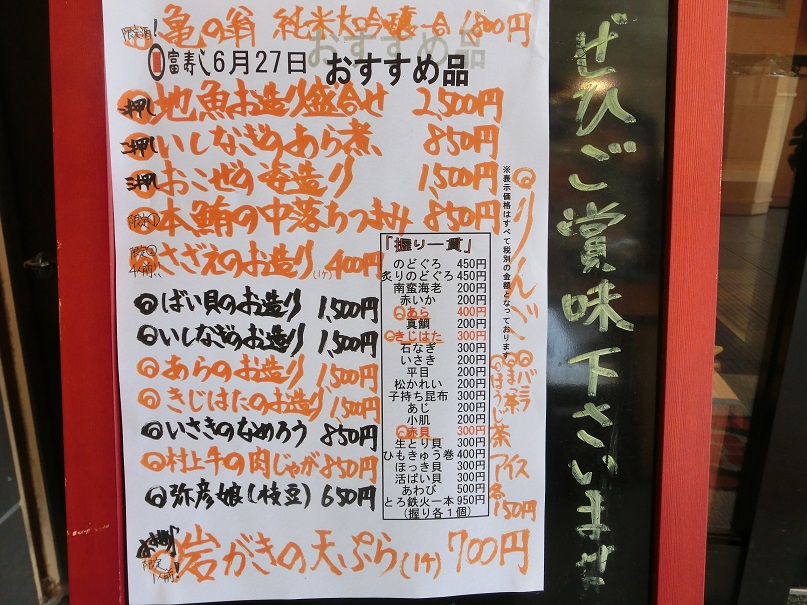 限定酒! 亀の翁 純米大吟醸一合 1,800円
富寿し 6月27日 おすすめ品
押し 地魚お造り盛合せ 2,500円
押し いしなぎのあら煮 850円
押し おこぜの姿造り 1,500円
限定① 本鮪の中落ちつまみ 850円
限定④人前 さざえのお造り(1ケ) 400円
ばい貝のお造り 1,500円
いしなぎのお造り 1,500円
あらのお造り 1,500円
きじはたのお造り 1,500円
いさきのなめろう 850円
村上牛の肉じゃが 850円
弥彦娘(枝豆) 650円
限定1人前! 岩がきの天ぷら(1ケ) 700円
「握り一貫」
のどぐろ 450円
炙りのどぐろ 450円
南蛮海老 200円
赤いか 200円
あら 400円
真鯛 200円
きじはた 300円
石なぎ 300円
いさき 200円
平目 200円
松かれい 200円
子持ち昆布 300円
あじ 200円
小肌 200円
赤貝 300円
生とり貝 300円
ひもきゅう巻 400円
ほっき貝 300円
活ばい貝 300円
あわび 500円
とろ鉄火一本 950円
(握り各1個)
※表示価格はすべて税別の金額となっております
りんご
バニラ
まっ茶
ほうじ茶
アイス
各150円
ぜひご賞味下さいませ